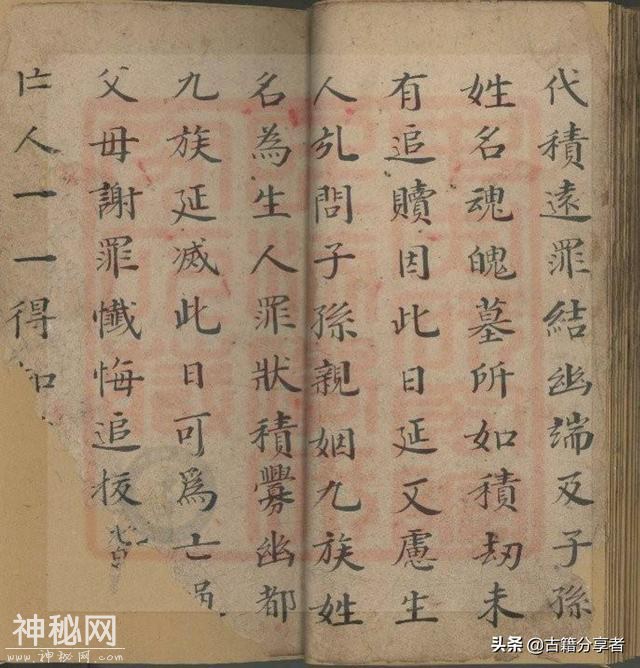 代積遠罪結幽端及子孫
姓名魂魄墓所如積劫未
有追贖因此日延又慮生
人問子孫親姻九族姓
名為生人罪狀積釁幽都
九族延滅此日可爲亡
父母謝罪懺悔追拔
亡人一一得
神秘网
WWW.神秘网.COM
头条 @古籍分享者